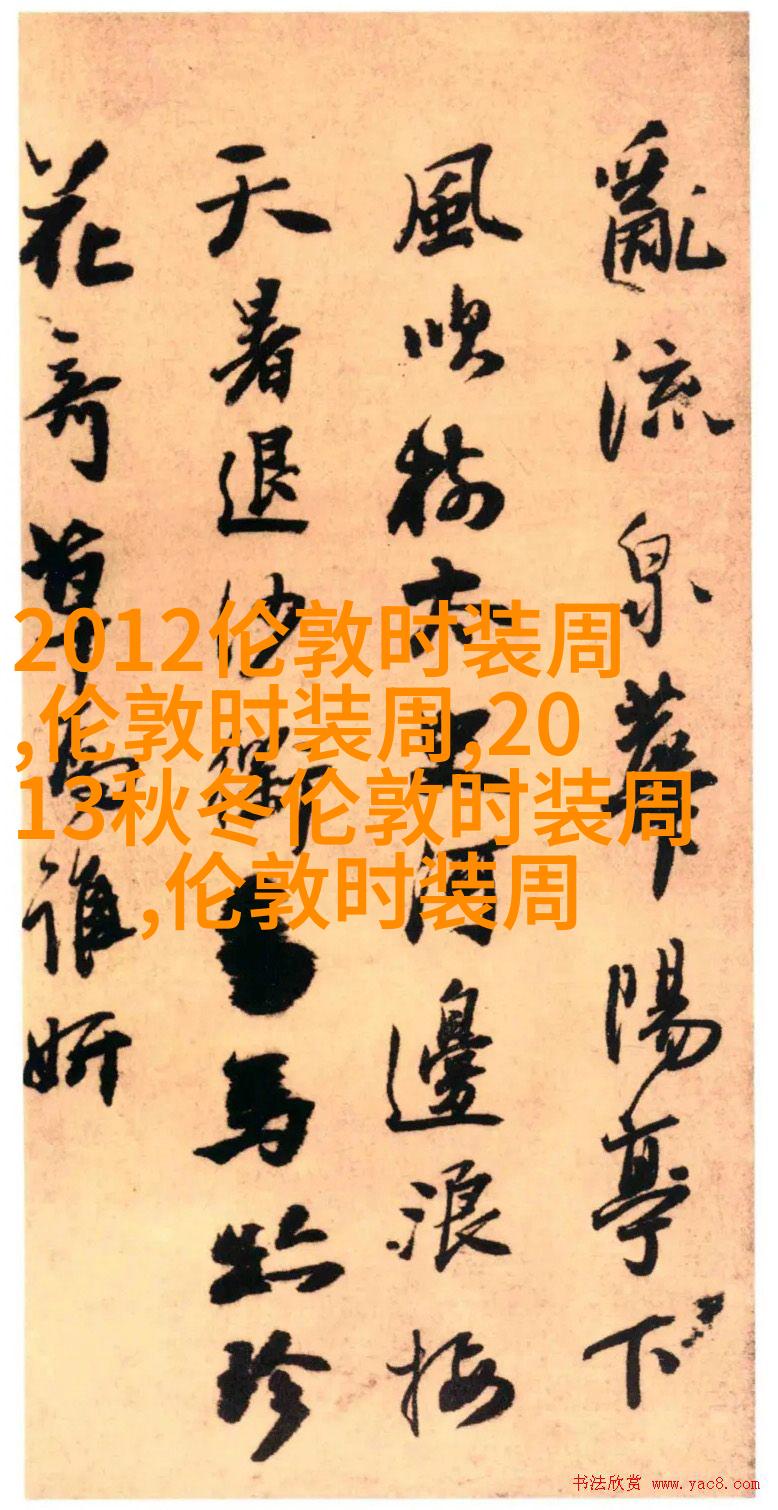 亂流泉華陽亭下
風吹樹邊浪接
天暑退馬珍
花奇草為誰妍
2012伦敦时装周
,伦敦时装周,20
13秋冬伦敦时装周
,伦敦时装周
书法欣赏 www.yac8.com